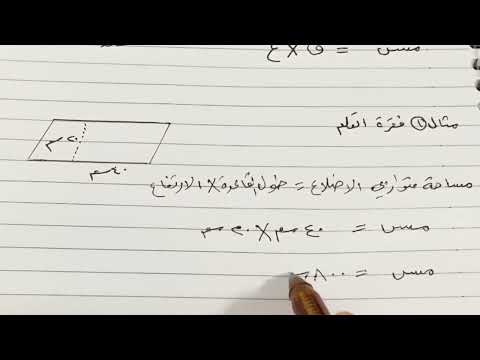 مس = ق × ع
مثال ① فقرة القلم
٢٠ سم
٤٠ سم
مساحة متوازي الاضلاع = طول القاعدة × الارتفاع
مس = ٤٠ سم × ٢٠ سم
مس = ٨٠٠